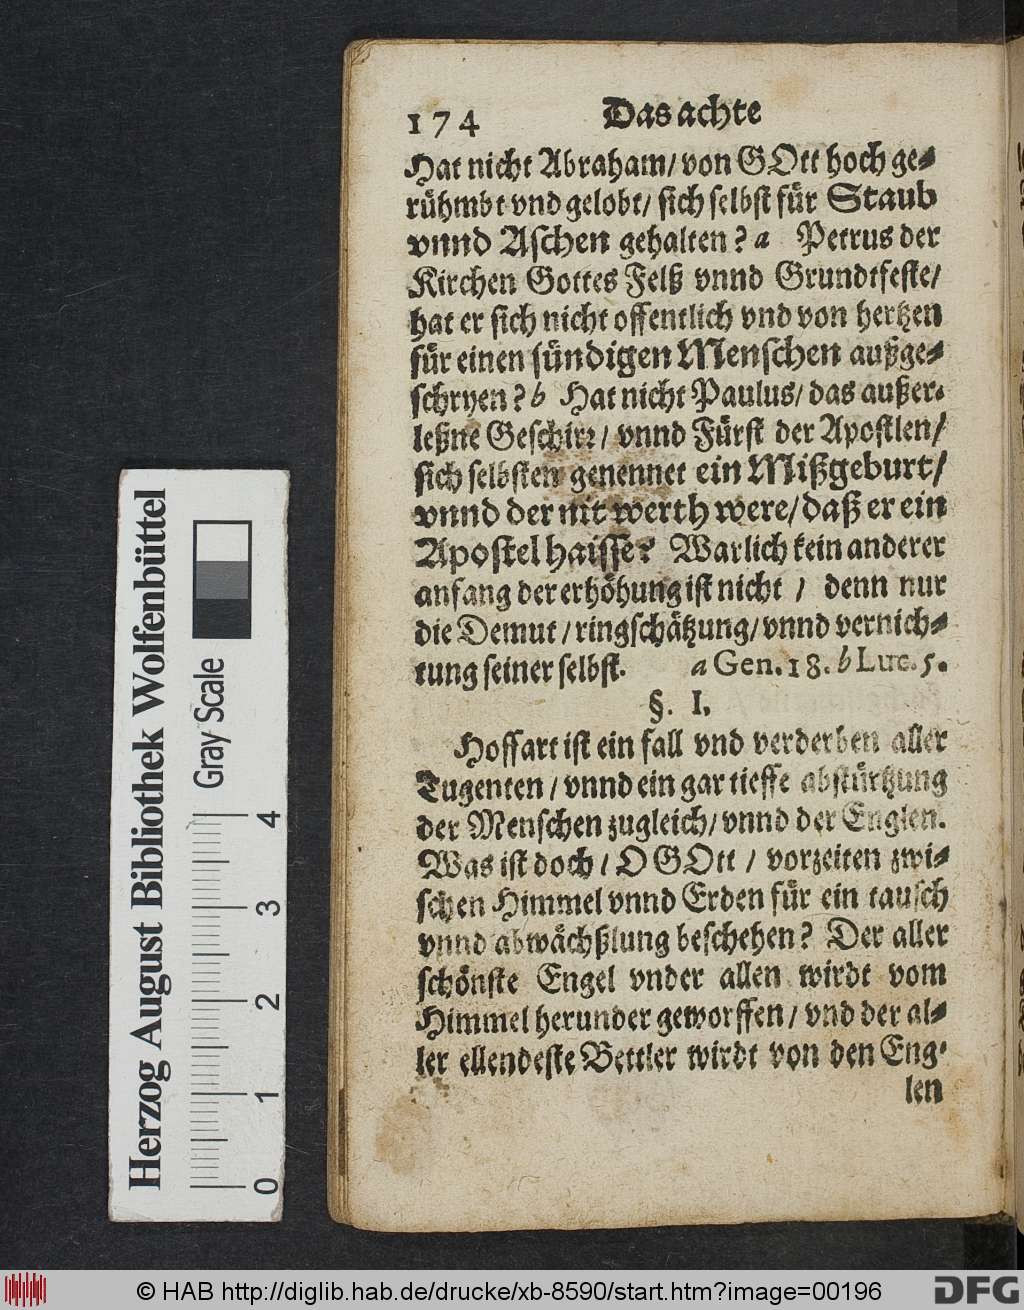 174 Das achte
Hat nicht Abraham/ von GOtt hoch ge-
rühmbt vnd gelobt/ sich selbst für Staub
vnnd Aschen gehalten? a Petrus der
Kirchen Gottes Felß vnnd Grundtfeste/
hat er sich nicht offentlich vnd von hertzen
für einen sündigen Menschen außge-
schryen? b Hat nicht Paulus/ das außer-
leßne Geschirr/ vnnd Fürst der Apostlen/
sich selbsten genennet ein Mißgeburt/
vnnd der nit werth were/ daß er ein
Apostel haisse? Warlich kein anderer
anfang der erhöhung ist nicht / denn nur
die Demut / ringschätzung/ vnnd vernich-
tung seiner selbst. a Gen. 18. b Luc. 5.
§. I.
Hoffart ist ein fall vnd verderben aller
Tugenten / vnnd ein gar tieffe abstürtzung
der Menschen zugleich/ vnnd der Englen.
Was ist doch / O GOtt / vorzeiten zwi-
schen Himmel vnnd Erden für ein tausch
vnnd abwächßlung beschehen? Der aller
schönste Engel vnder allen wirdt vom
Himmel herunder geworffen / vnd der al-
ler ellendeste Bettler wirdt von den Eng-
len
Herzog August Bibliothek Wolfenbüttel
Gray Scale
0 1 2 3 4
© HAB http://diglib.hab.de/drucke/xb-8590/start.htm?image=00196
DFG